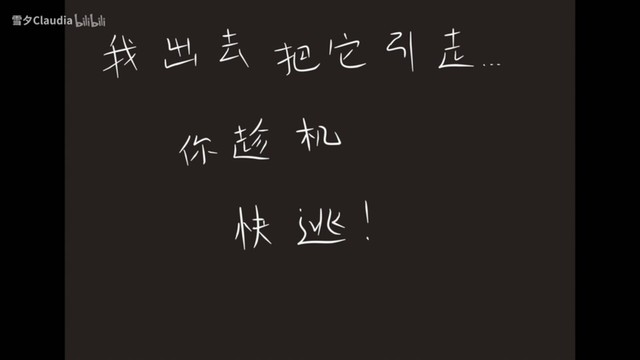 雪夕Claudia bilibili
我出去把它引走...
你趁机
快逃!